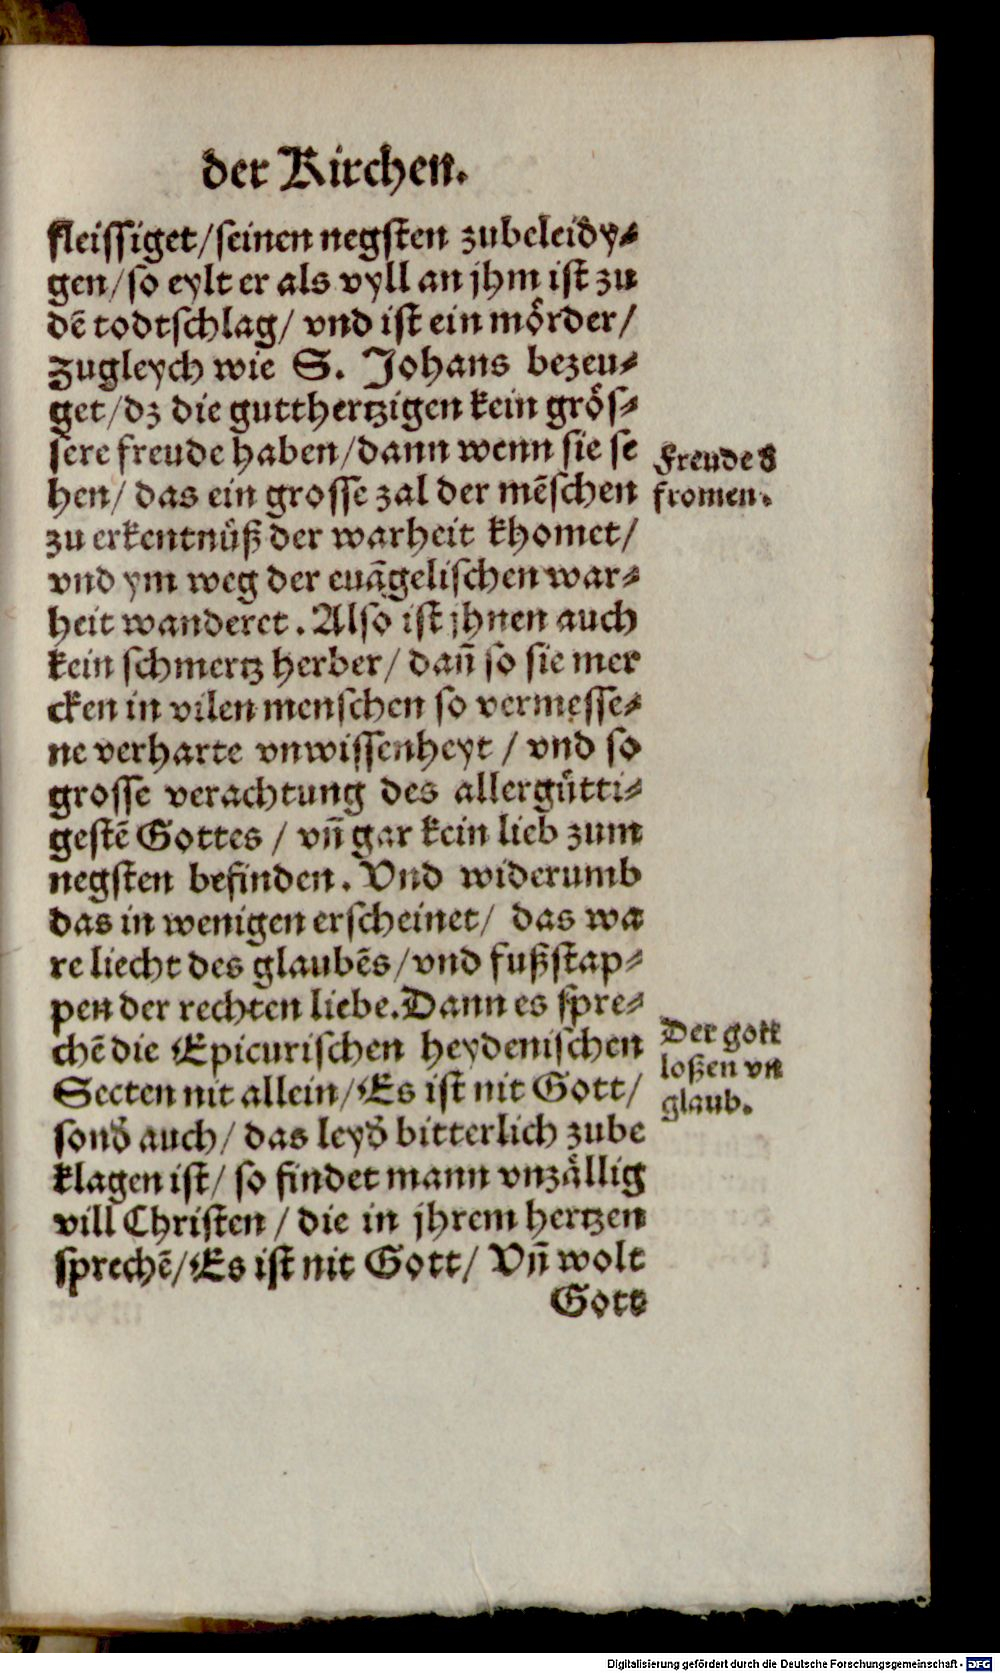 der Kirchen.
fleissiget/seinen negsten zubeleidy⸗
gen/so eylt er als vyll an jhm ist zu
dē todtschlag/ vnd ist ein mörder/
zugleych wie S. Johans bezeu⸗
get/dz die gutthertzigen kein grös⸗
sere freude haben/dann wenn sie se
hen/ das ein grosse zal der mēschen
zu erkentnüß der warheit khomet/
vnd ym weg der euāgelischen war⸗
heit wanderet. Also ist jhnen auch
kein schmertz herber/ dañ so sie mer
cken in vilen menschen so vermesse⸗
ne verharte vnwissenheyt / vnd so
grosse verachtung des allergütti⸗
gestē Gottes / vñ gar kein lieb zum
negsten befinden. Vnd widerumb
das in wenigen erscheinet/ das wa
re liecht des glaubēs/vnd fußstap⸗
pen der rechten liebe. Dann es spre⸗
chē die Epicurischen heydenischen
Secten nit allein/Es ist nit Gott/
sond̄ auch/ das leyd̄ bitterlich zube
klagen ist/ so findet mann vnzällig
vill Christen / die in jhrem hertzen
sprechē/Es ist nit Gott/ Vñ wolt
Gott
Freude d̄
fromen.
Der gott
loßen vn
glaub.
Digitalisierung gefördert durch die Deutsche Forschungsgemeinschaft - DFG